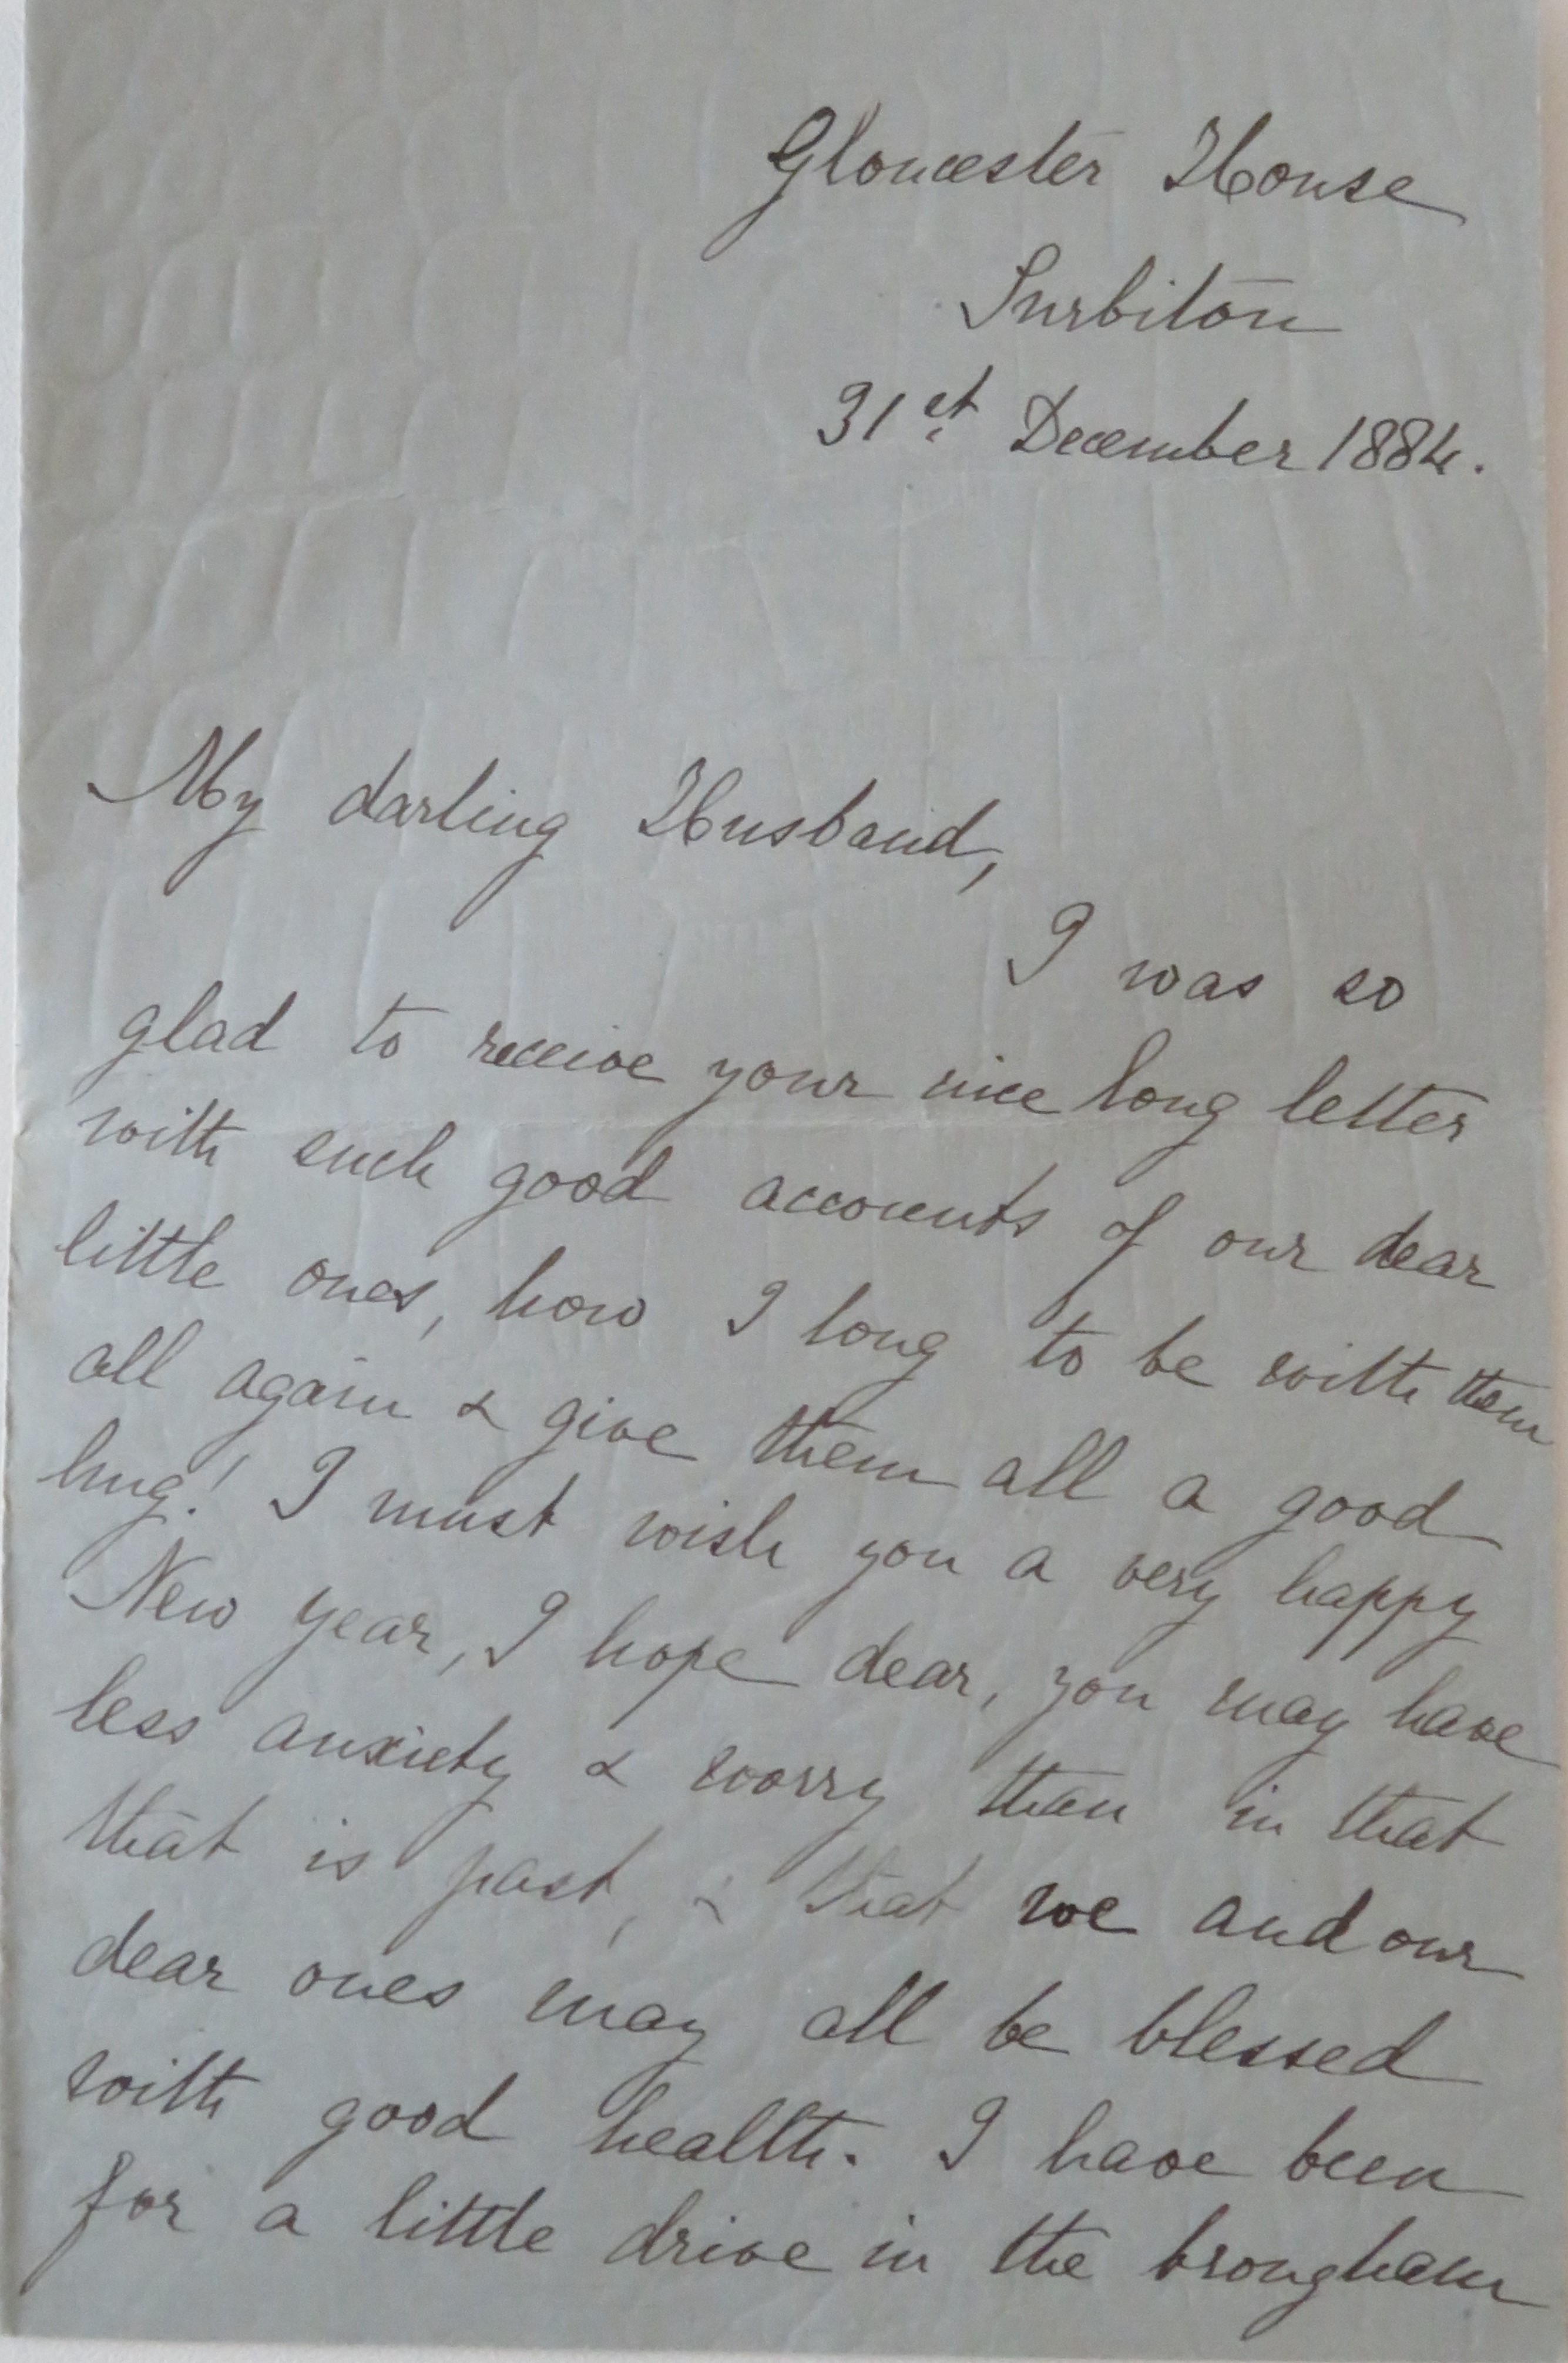 Gloucester House
Surbiton
31st December 1884.
My darling Husband,
I was so
glad to receive your nice long letter
with such good accounts of our dear
little ones, how I long to be with them
all again & give them all a good
hug! I must wish you a very happy
New year, I hope dear, you may have
less anxiety & worry than in that
that is past, & that we and our
dear ones may all be blessed
with good health. I have been
for a little drive in the brougham